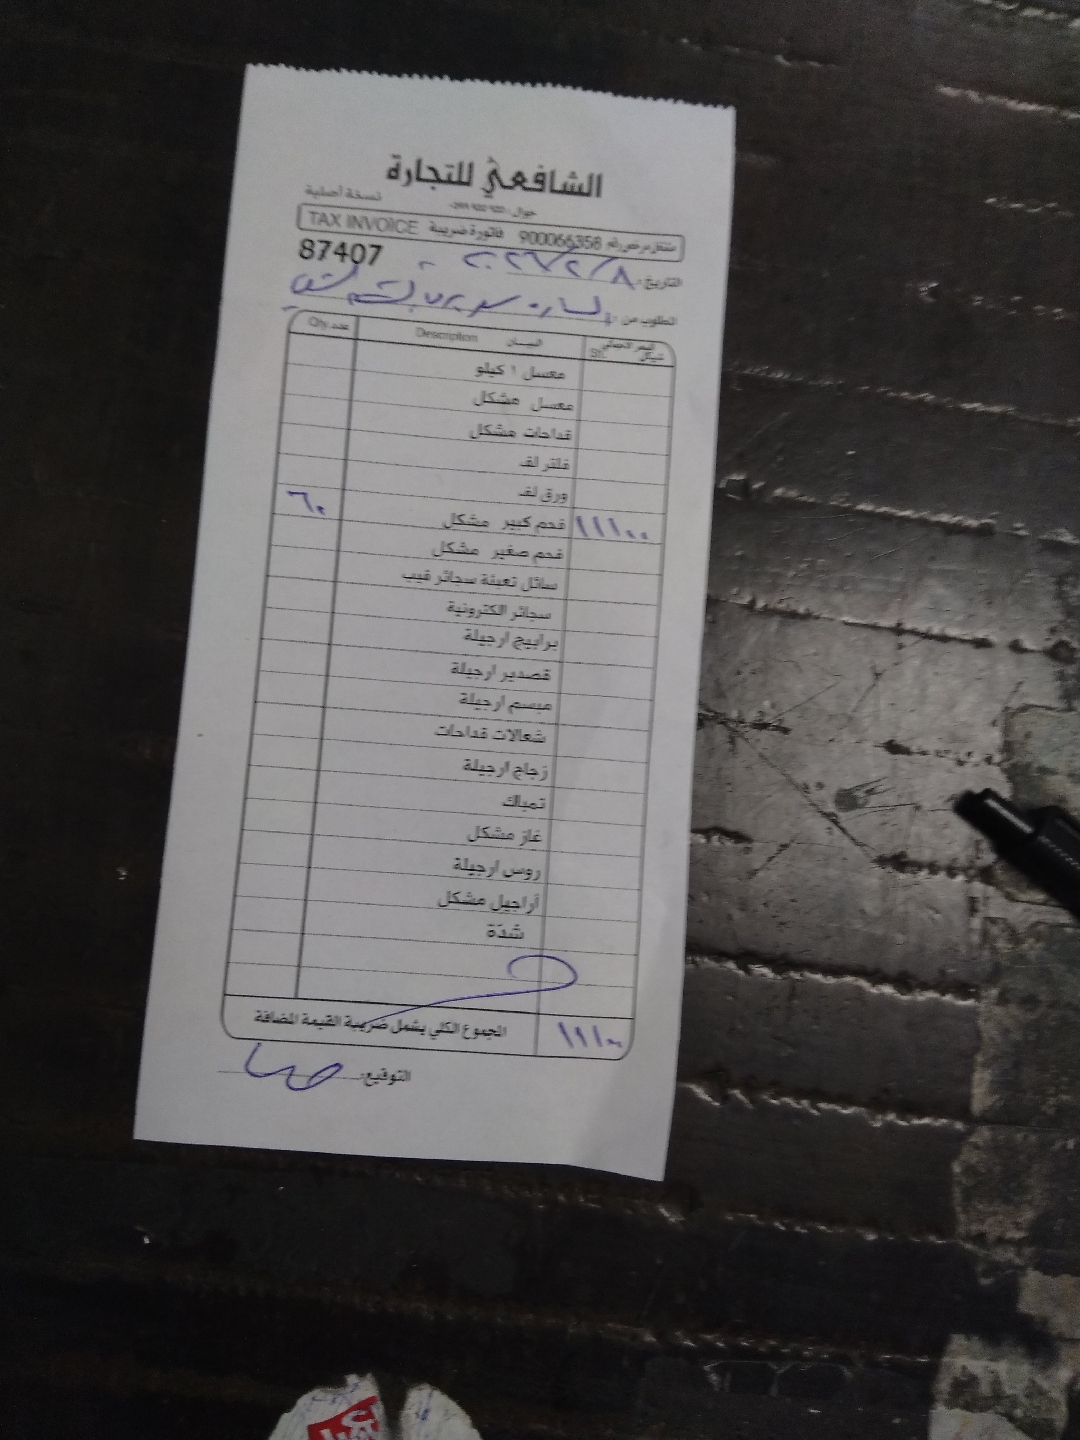 الشافعي للتجارة
نسخة أصلية
مشتغل مرخص رقم 900066358 فاتورة ضريبة TAX INVOICE
87407
التاريخ: ٢٠٢٦/٢/٨
المطلوب من
السعر الاجمالي شيكل Sh. البيـــان Description عدد Qty
معسل ١ كيلو
معسل مشكل
قداحات مشكل
فلتر لف
ورق لف
١١١٠٠ فحم كبير مشكل ٦٠
فحم صغير مشكل
سائل تعبئة سجائر فيب
سجائر الكترونية
برابيج ارجيلة
قصدير ارجيلة
مبسم ارجيلة
شعالات قداحات
زجاج ارجيلة
تمباك
غاز مشكل
روس ارجيلة
أراجيل مشكل
شدّة
١١١٠٠ المجموع الكلي يشمل ضريبة القيمة المضافة
التوقيع: